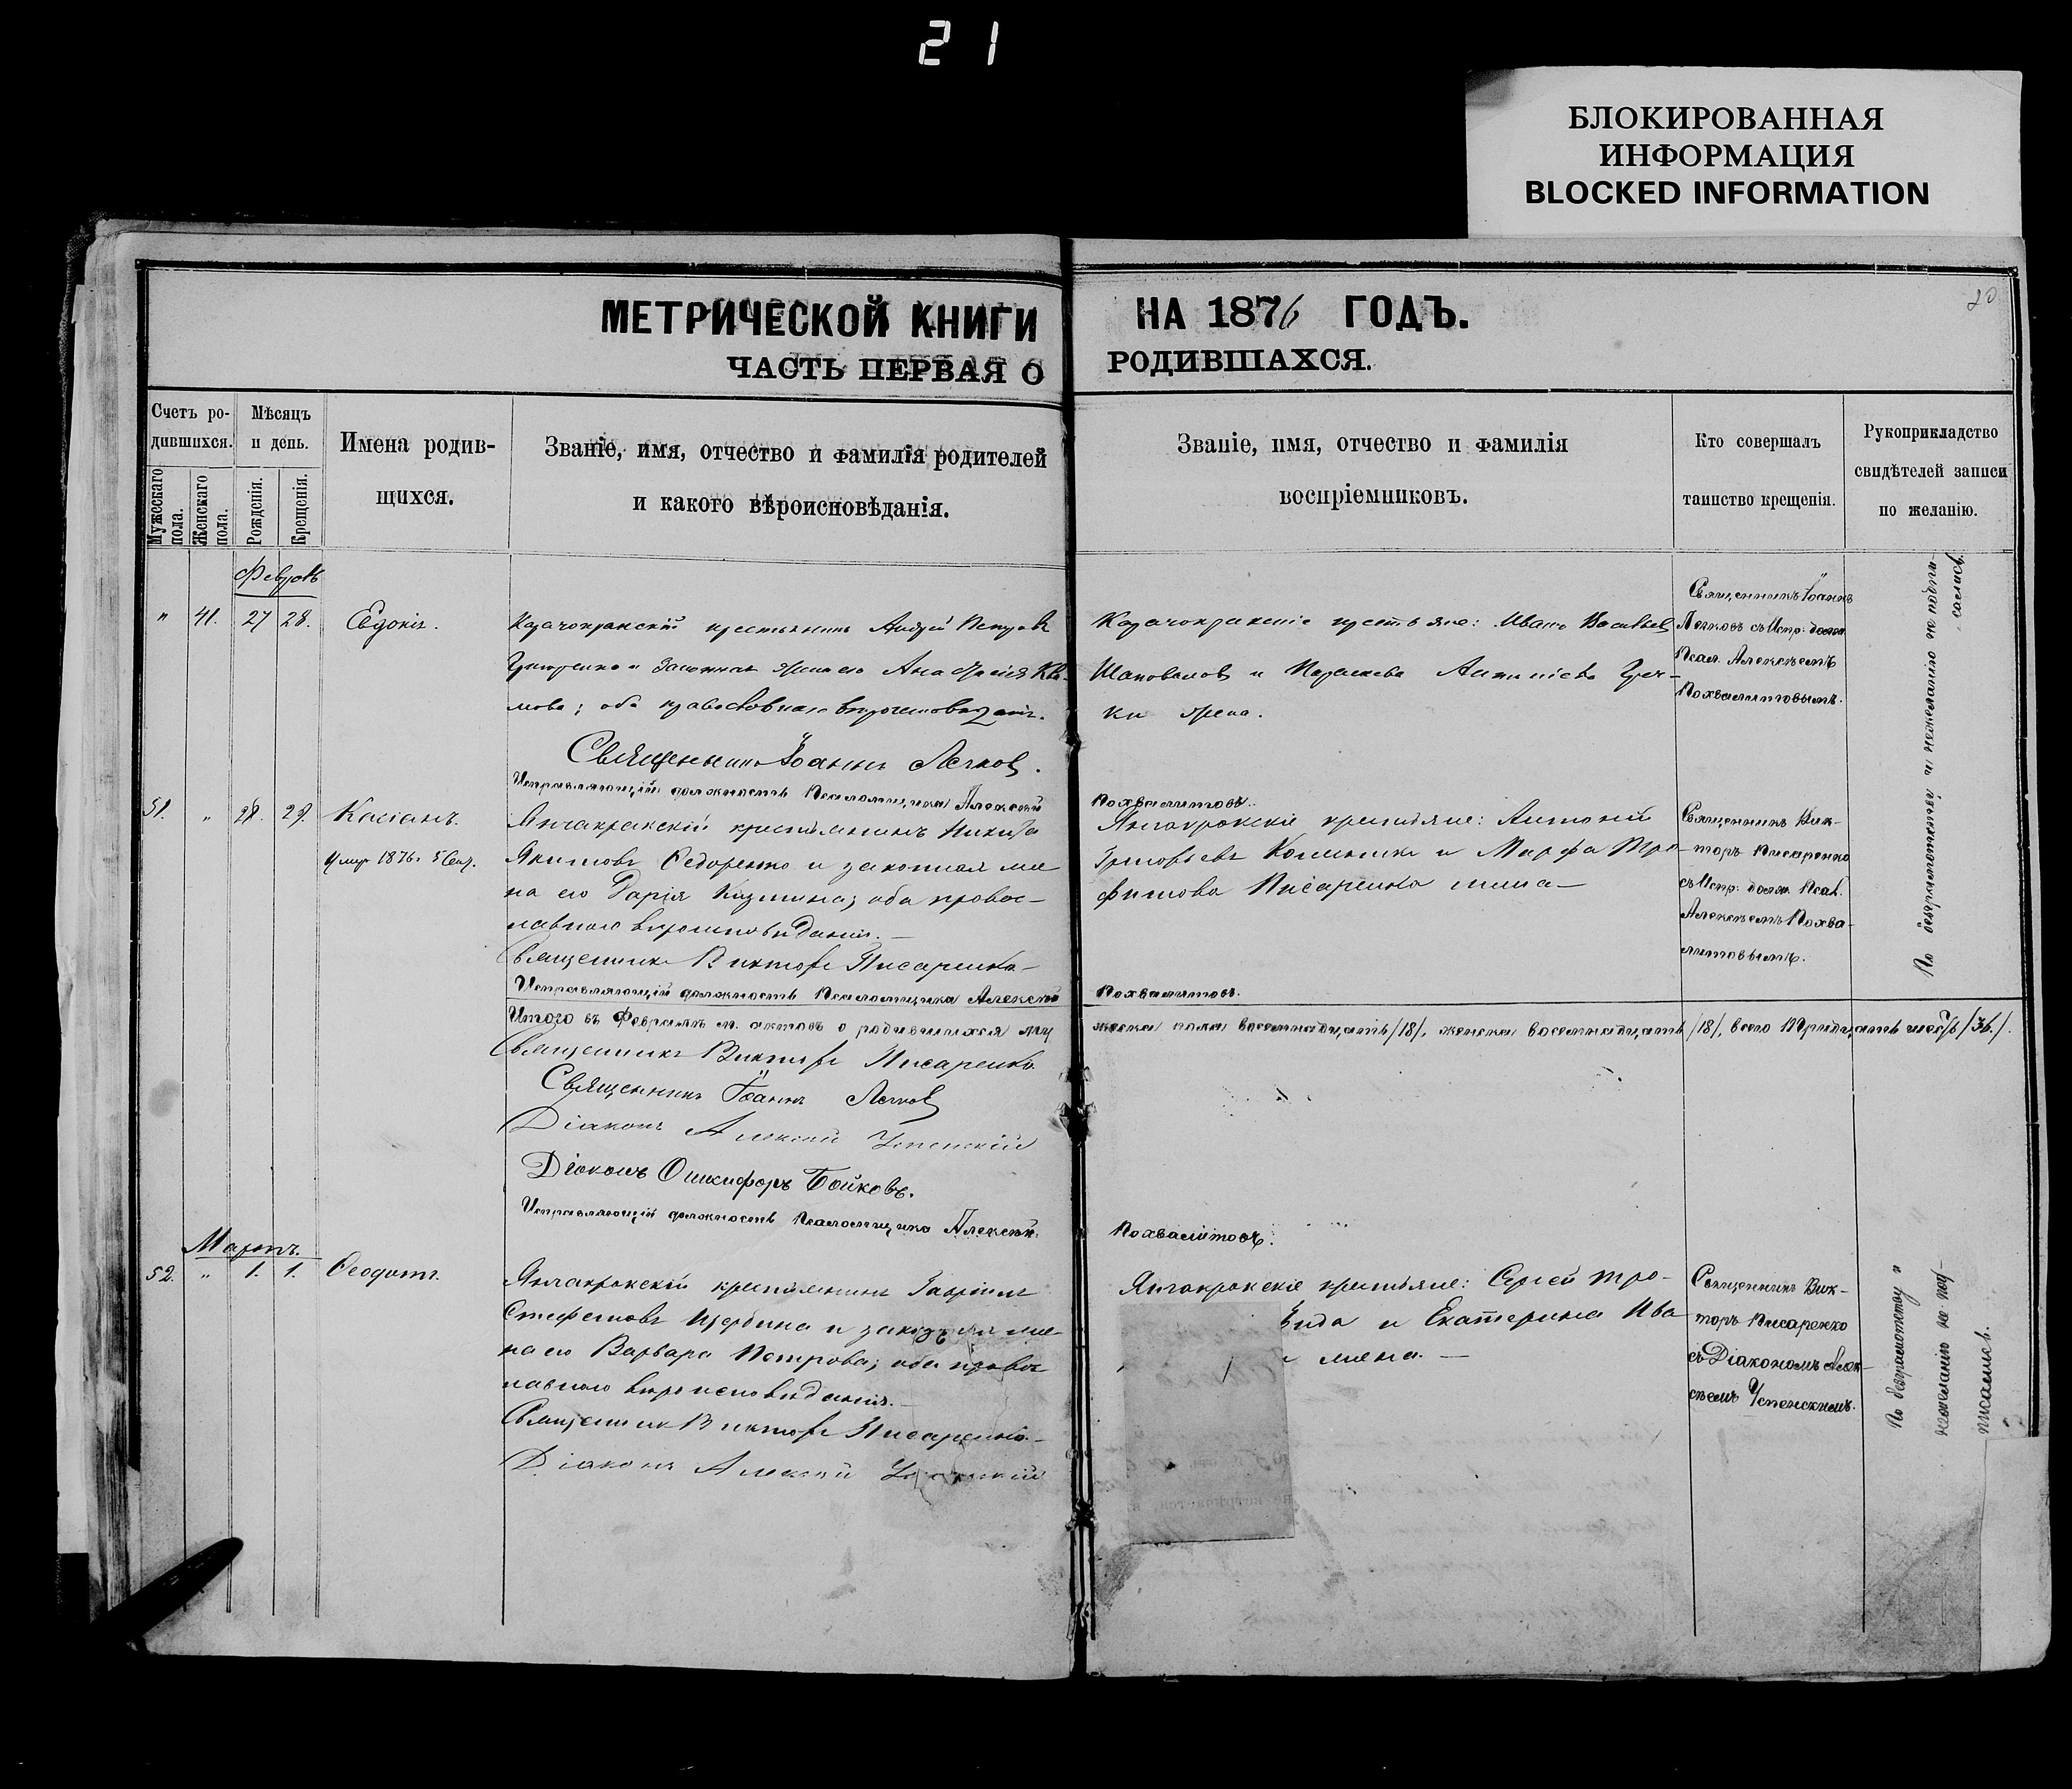 21
БЛОКИРОВАННАЯ
ИНФОРМАЦИЯ
BLOCKED INFORMATION
20
МЕТРИЧЕСКОЙ КНИГИ НА 1876 ГОДЪ.
ЧАСТЬ ПЕРВАЯ О РОДИВШАХСЯ.
Счетъ ро-
дившихся.
Мужескаго
пола.
Женскаго
пола.
Мѣсяцъ
и день.
Рожденія.
Крещенія.
Имена родив-
щихся.
Званіе, имя, отчество и фамилія родителей
и какого вѣроисповѣданія.
Званіе, имя, отчество и фамилія
воспріемниковъ.
Кто совершалъ
таинство крещенія.
Рукоприкладство
свидѣтелей записи
по желанію.
" 41. 27 28. Евдокія.
крестьянинъ Андрей Петровъ
и законная жена его Анастасія
оба православнаго вѣроисповѣданія.
Священникъ Іоаннъ
Исправляющій должность Псаломщика Алексѣй
крестьяне: Иванъ Васильевъ
Шаповаловъ и Параскева
жена.
Священникъ Іоаннъ
съ Испр: долж.
Псал. Алексѣемъ
Похвалитовымъ.
51. " 28. 29. Касіанъ.
умеръ 1876 г. 5 Сент.
Янчакракскій крестьянинъ Никита
Якимовъ Ѳедоренко и законная же-
на его Дарія Кузмина; оба правос-
лавнаго вѣроисповѣданія.—
Священникъ Викторъ Писаренко—
Исправляющій должность Псаломщика Алексѣй
Похвалитовъ.
Янчакракскіе крестьяне: Антоній
Григорьевъ и Марфа Тро-
фимова Писаренкова жена—
Похвалитовъ.
Священникъ Вик-
торъ Писаренко
съ Испр: долж. Псал.
Алексѣемъ Похва-
литовымъ.
По безграмотству и нежеланію не подпи-
сались.
Итого въ Февралѣ м. актовъ о родившихся му
жеска пола восемнадцать /18/, женска восемнадцать /18/, всего тридцать шесть /36/.
Священникъ Викторъ Писаренко
Священникъ Іоаннъ
Діаконъ Алексѣй Успенскій
Діаконъ Онисифоръ Бойковъ.
Исправляющій должность Псаломщика Алексѣй
Похвалитовъ.
Мартъ.
52. " 1. 1. Ѳеодотъ.
Янчакракскій крестьянинъ Гавріилъ
Стефановъ Щербина и законная же-
на его Варвара Петрова; оба правос
лавнаго вѣроисповѣданія.—
Священникъ Викторъ Писаренко—
Діаконъ Алексѣй Успенскій
Янчакракскіе крестьяне: Сергѣй Тро-
и Екатерина Ива
жена.—
Священникъ Вик-
торъ Писаренко
съ Діакономъ Алек-
сѣемъ Успенскимъ.
По безграмотству и
нежеланію не под-
писались.